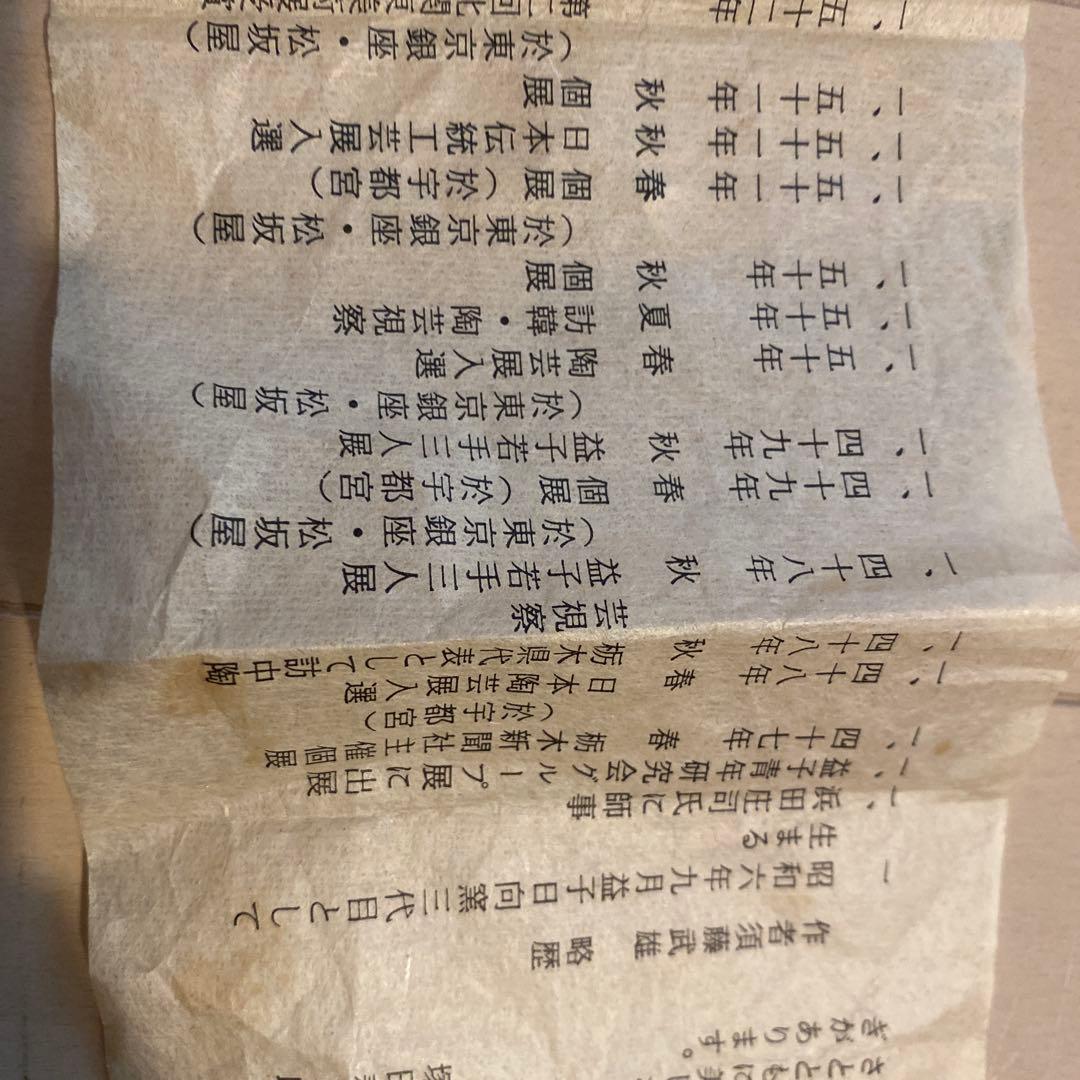 さとともに美し
きがあります。
作者須藤武雄 略歴
一 昭和六年九月益子日向窯三代目として
生まる
一、浜田庄司氏に師事
一、益子青年研究会グループ展に出展
一、四十七年 春 栃木新聞社主催個展
（於宇都宮）
一、四十八年 春 日本陶芸展入選
一、四十八年 秋 栃木県代表として訪中陶
芸視察
一、四十八年 秋 益子若手三人展
（於東京銀座・松坂屋）
一、四十九年 春 個展（於宇都宮）
一、四十九年 秋 益子若手三人展
（於東京銀座・松坂屋）
一、五十年 春 陶芸展入選
一、五十年 夏 訪韓・陶芸視察
一、五十年 秋 個展
（於東京銀座・松坂屋）
一、五十一年 春 個展（於宇都宮）
一、五十一年 秋 日本伝統工芸展入選
一、五十一年 秋 個展
（於東京銀座・松坂屋）
一、五十二年 第二回北関東美術展